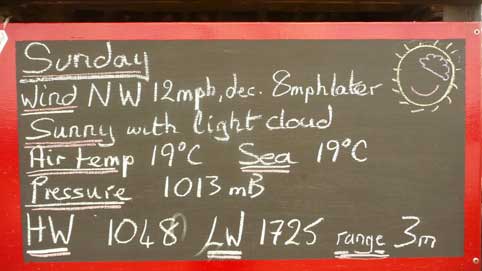 Sunday
Wind NW 12mph, dec. 8mph later
Sunny with light cloud
Air temp 19°C Sea 19°C
Pressure 1013 mB
HW 1048 LW 1725 range 3m